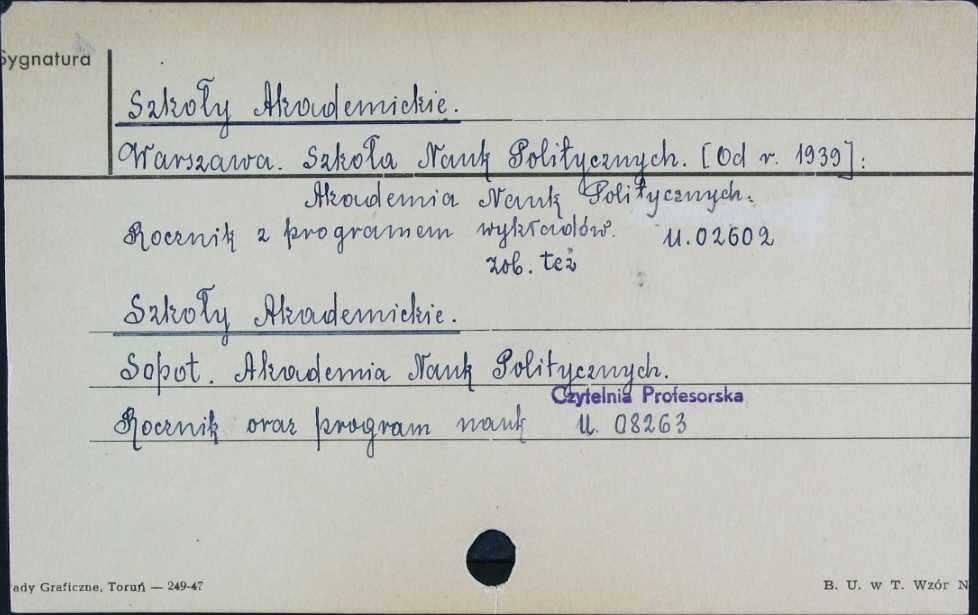 Sygnatura
Szkoły Akademickie.
Warszawa. Szkoła Nauk Politycznych. [Od r. 1939]:
Akademia Nauk Politycznych.
Rocznik z programem wykładów. U.02602
zob. też
Szkoły Akademickie.
Sopot. Akademia Nauk Politycznych.
Czytelnia Profesorska
Rocznik oraz program nauk U. 08263
ady Graficzne, Toruń — 249-47 B. U. w T. Wzór N